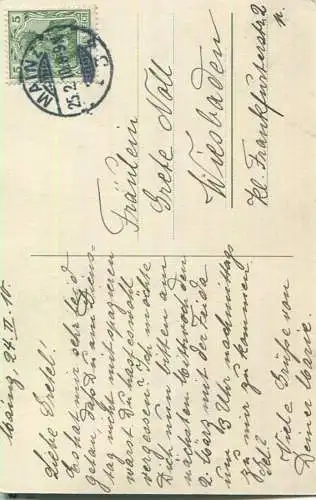 5
5
MAINZ
25.2.10. 8-9
* 3
Fräulein
Grete Noll
Wiesbaden
Kl. Frankfurterstr. 2
Mainz, 24. II. 10.
Liebe Gretel!
Es hat mir sehr leid
getan, daß du am Diens-
tag nicht mit spazieren
warst. Du hast es wohl
vergessen? Ich möchte
Dich nun bitten am
nächsten Mittwoch den
2 März mit der Frida
um ½3 Uhr nachmittags
zu mir zu kommen.
Viele Grüße von
Deiner Marie.